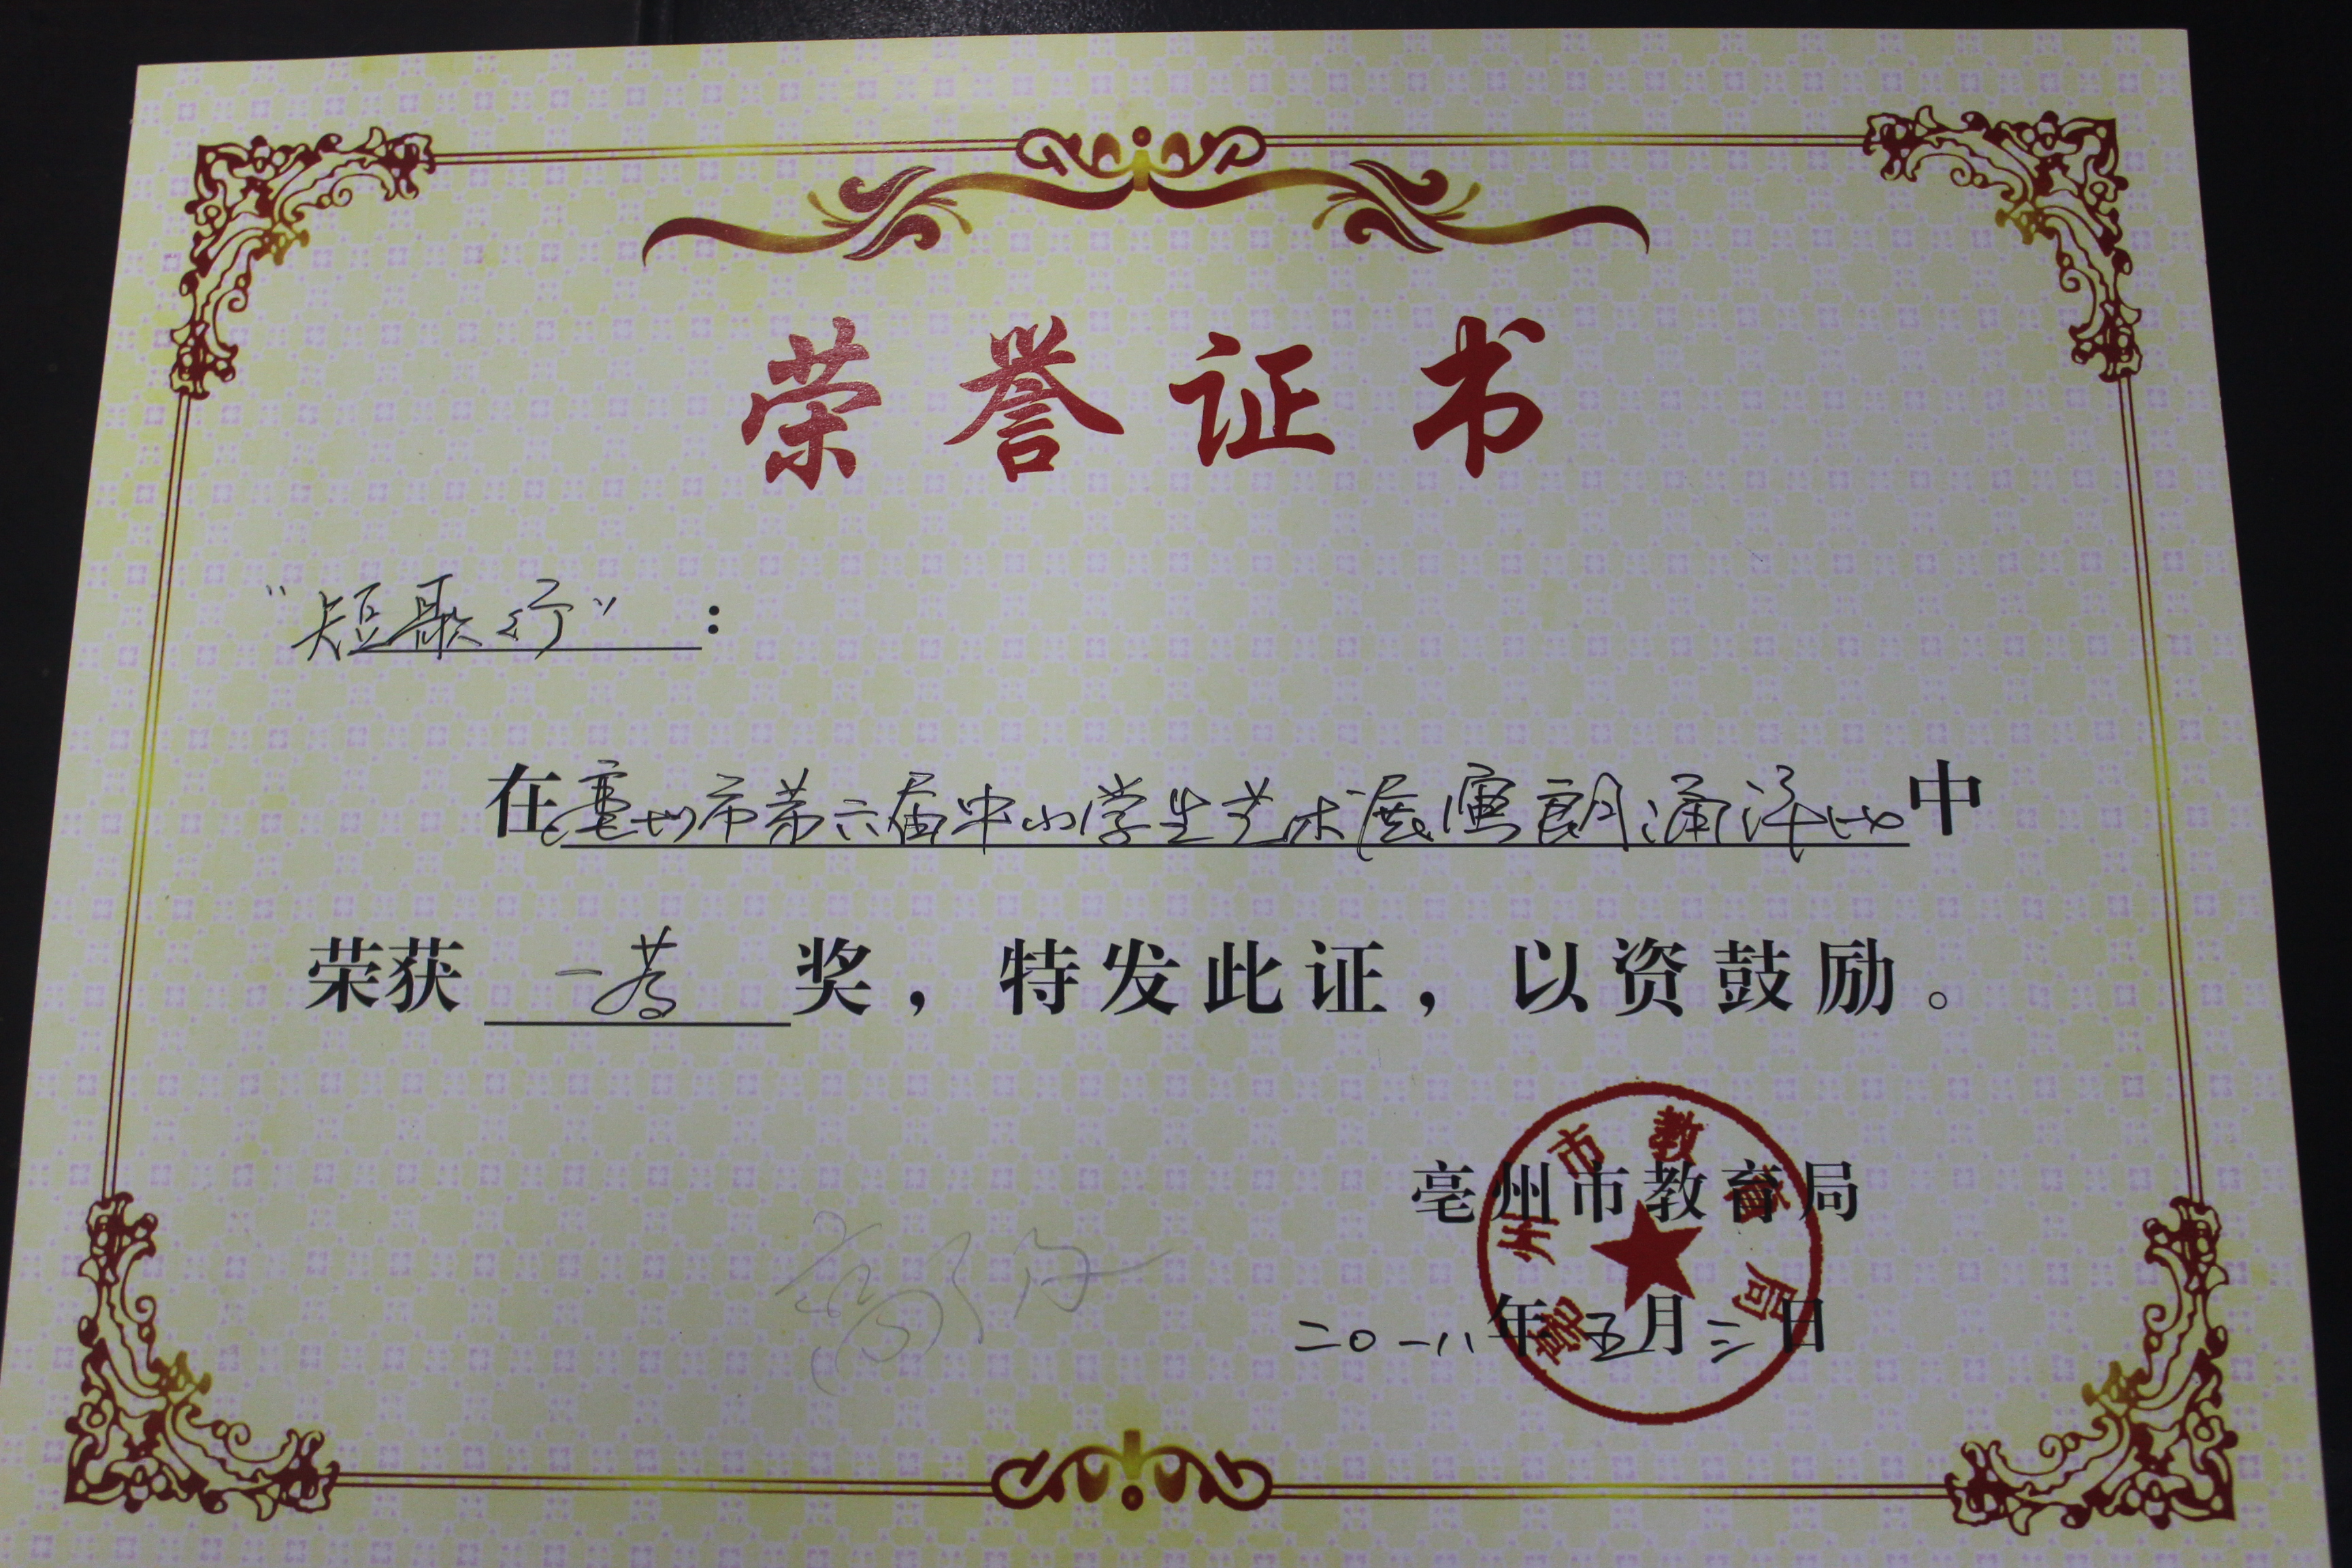 荣誉证书
“短歌行”：
在亳州市第六届中小学生艺术展演朗诵评比中
荣获一等奖，特发此证，以资鼓励。
亳州市教育局
二〇一八年五月三日
亳州市教育局